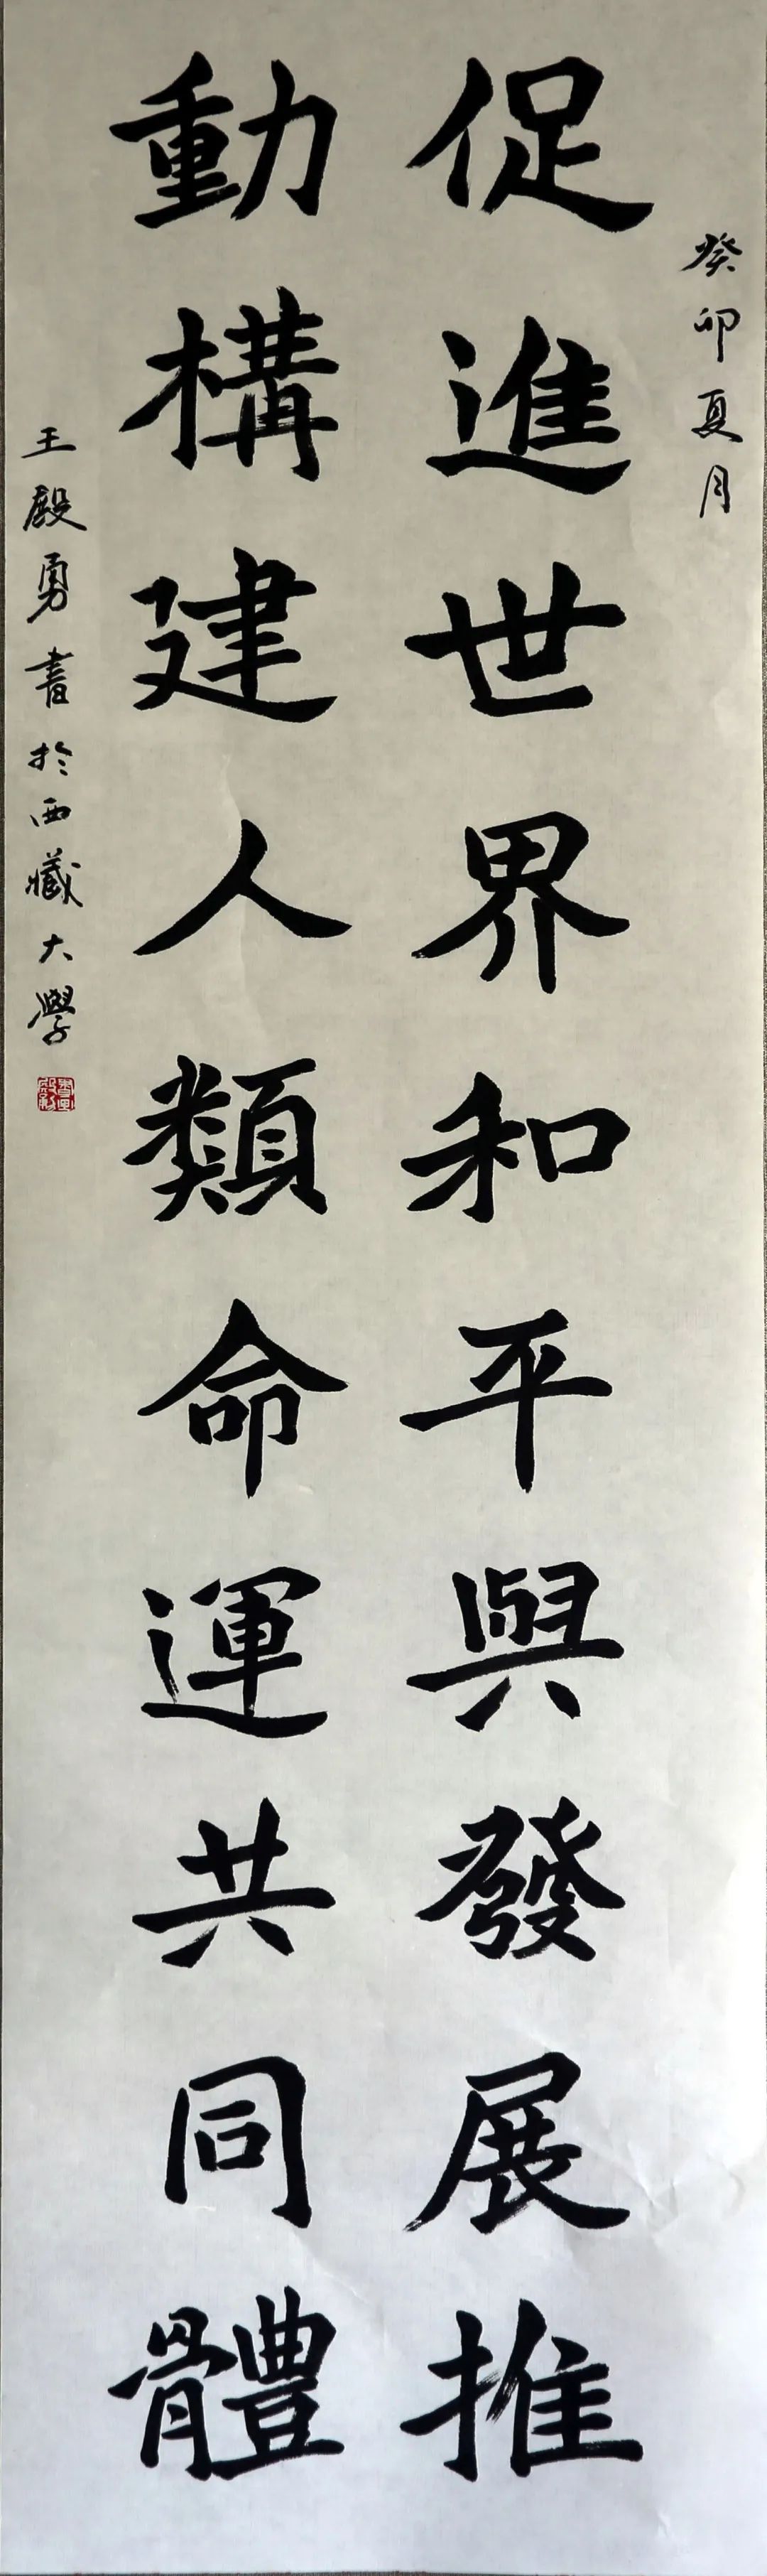 癸卯夏月
促進世界和平與發展推
動構建人類命運共同體
王殿勇書於西藏大學